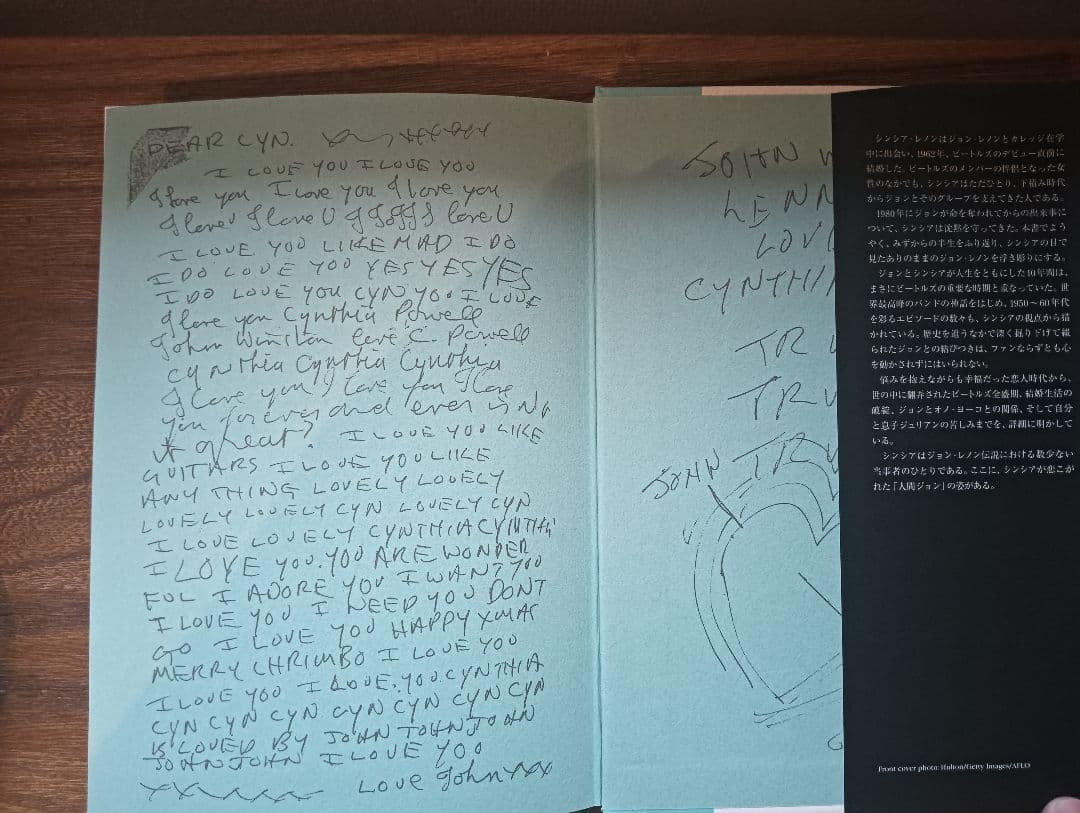 DEAR CYN.
I LOVE YOU I LOVE YOU
I love you I love you I love you
I love U I love U I love U
I LOVE YOU LIKE MAD I DO
I DO LOVE YOU YES YES YES
I DO LOVE YOU CYN YOU I LOVE
I love you Cynthia Powell
John Winston love C. Powell
CYNTHIA Cynthia Cynthia
I love you I love you I love
you forever and ever is N
it great? I LOVE YOU LIKE
GUITARS I LOVE YOU LIKE
ANY THING LOVELY LOVELY
LOVELY LOVELY CYN LOVELY CYN
I LOVE LOVELY CYNTHIA CYNTHIA
I LOVE YOU. YOU ARE WONDER
FUL I ADORE YOU I WANT YOU
I LOVE YOU I NEED YOU DONT
GO I LOVE YOU HAPPY XMAS
MERRY CHRIMBO I LOVE YOU
I LOVE YOU I LOVE. YOU. CYNTHIA
CYN CYN CYN CYN CYN CYN CYN
IS LOVED BY JOHN JOHN JOHN
JOHN JOHN I LOVE YOU
LOVE John xxx
JOHN W
LENN
LOV
CYNTHIA
TRU
TRU
JOHN TRU
シンシア・レノンはジョン・レノンとカレッジ在学
中に出会い、1962年、ビートルズのデビュー直前に
結婚した。ビートルズのメンバーの伴侶となった女
性のなかでも、シンシアはただひとり、下積み時代
からジョンとそのグループを支えてきた人である。
1980年にジョンが命を奪われてからの出来事に
ついて、シンシアは沈黙を守ってきた。本書でよう
やく、みずからの半生をふり返り、シンシアの目で
見たありのままのジョン・レノンを浮き彫りにする。
ジョンとシンシアが人生をともにした10年間は、
まさにビートルズの重要な時期と重なっていた。世
界最高峰のバンドの神話をはじめ、1950〜60年代
を彩るエピソードの数々も、シンシアの視点から描
かれている。歴史を追うなかで深く掘り下げて綴
られたジョンとの結びつきは、ファンならずとも心
を動かされずにはいられない。
悩みを抱えながらも幸福だった恋人時代から、
世の中に翻弄されたビートルズ全盛期、結婚生活の
破綻、ジョンとオノ・ヨーコとの関係、そして自分
と息子ジュリアンの苦しみまでを、詳細に明かして
いる。
シンシアはジョン・レノン伝説における数少ない
当事者のひとりである。ここに、シンシアが恋こが
れた「人間ジョン」の姿がある。
Front cover photo: Hulton/Getty Images/AFLO